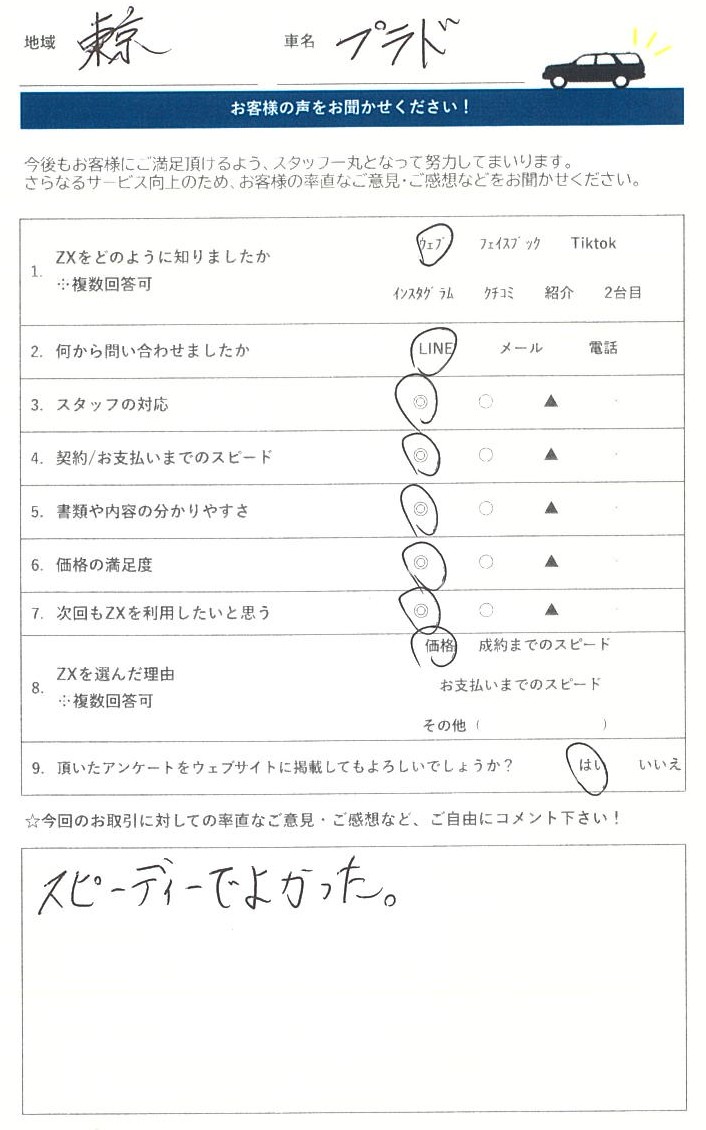 地域 東京 車名 プラド
お客様の声をお聞かせください！
今後もお客様にご満足頂けるよう、スタッフ一丸となって努力してまいります。
さらなるサービス向上のため、お客様の率直なご意見・ご感想などをお聞かせください。
1. ZXをどのように知りましたか ※複数回答可 ウェブ フェイスブック Tiktok
インスタグラム クチコミ 紹介 2台目
2. 何から問い合わせましたか LINE メール 電話
3. スタッフの対応 ◎ ○ ▲ ・
4. 契約/お支払いまでのスピード ◎ ○ ▲ ・
5. 書類や内容の分かりやすさ ◎ ○ ▲ ・
6. 価格の満足度 ◎ ○ ▲ ・
7. 次回もZXを利用したいと思う ◎ ○ ▲ ・
8. ZXを選んだ理由 ※複数回答可 価格 成約までのスピード
お支払いまでのスピード
その他（ ）
9. 頂いたアンケートをウェブサイトに掲載してもよろしいでしょうか？ はい いいえ
☆今回のお取引に対しての率直なご意見・ご感想など、ご自由にコメント下さい！
スピーディーでよかった。